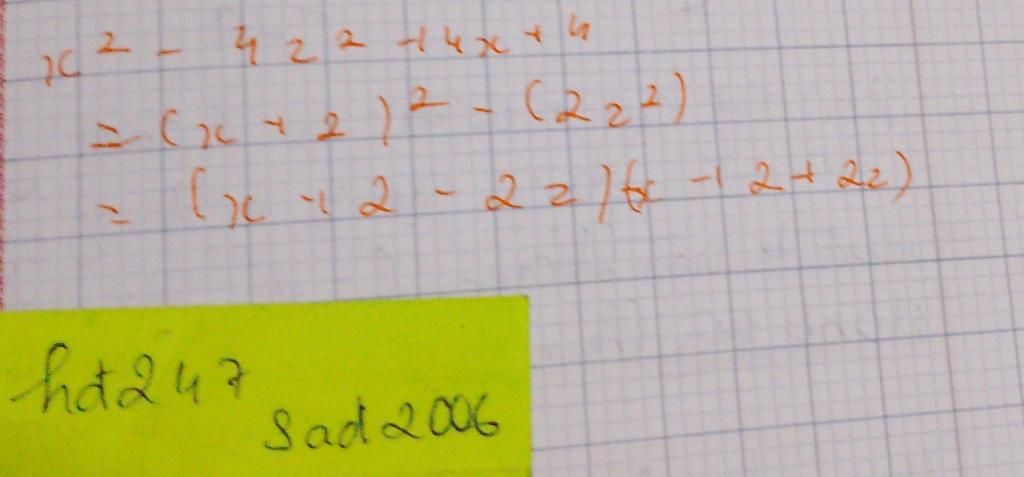 x² - 4z² + 4x + 4
= (x + 2)² - (2z²)
= (x + 2 - 2z)(x + 2 + 2z)
hdt247
sad2006